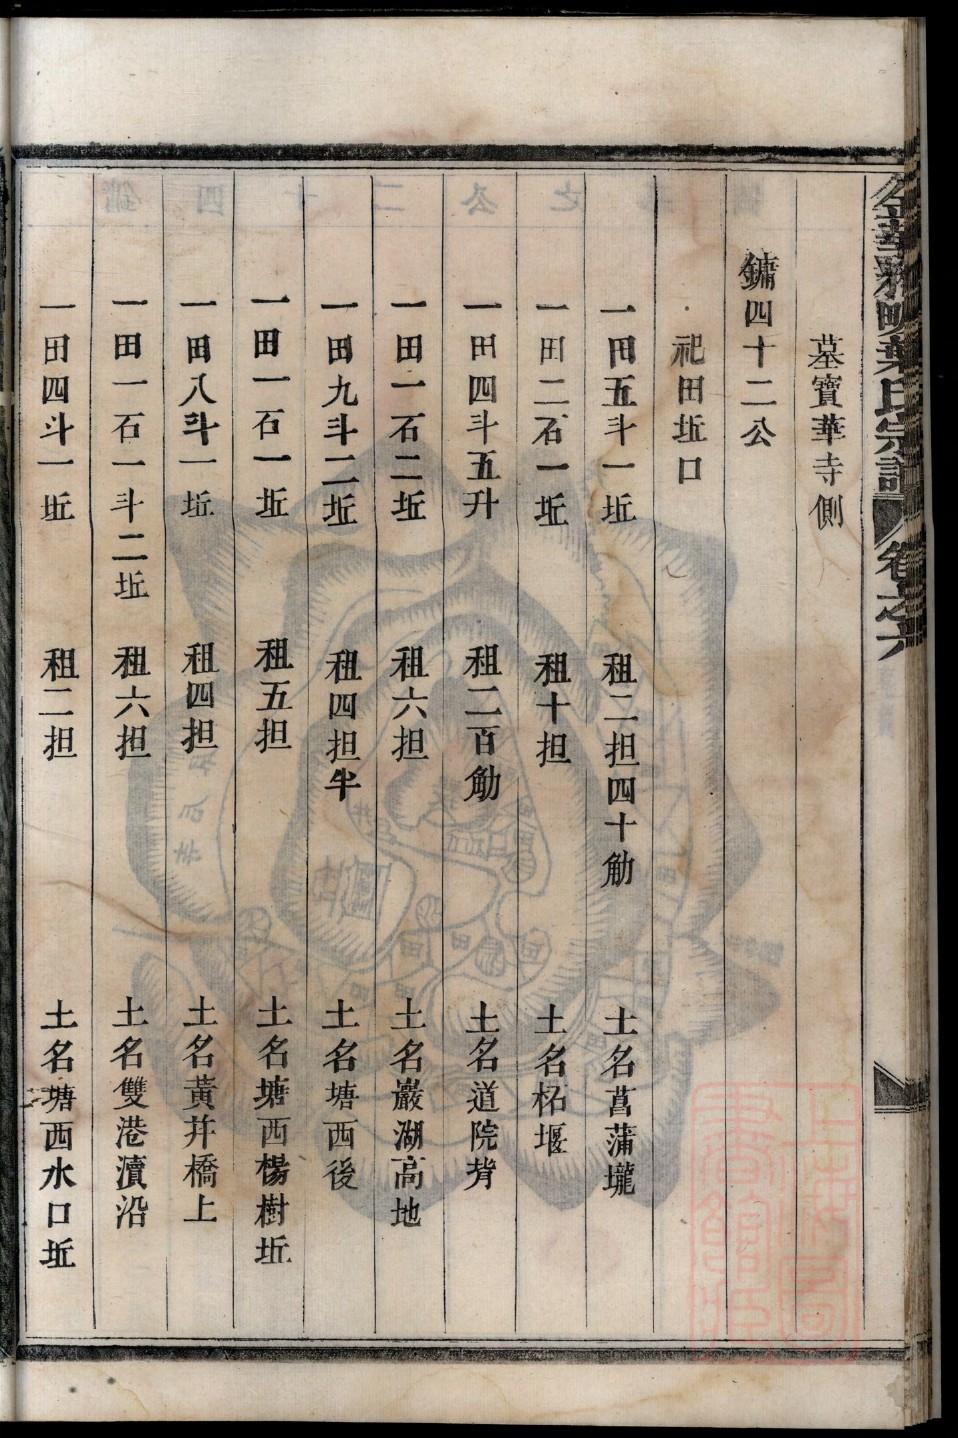 墓寶華寺側
鏞四十二公
祀田坵口
一田五斗一坵 租二担四十觔 土名菖蒲壠
一田二石一坵 租十担 土名柘堰
一田四斗五升 租二百觔 土名道院背
一田一石二坵 租六担 土名巖湖高地
一田九斗二坵 租四担半 土名塘西後
一田一石一坵 租五担 土名塘西楊樹坵
一田八斗一坵 租四担 土名黃井橋上
一田一石一斗二坵 租六担 土名雙港瀆沿
一田四斗一坵 租二担 土名塘西水口坵